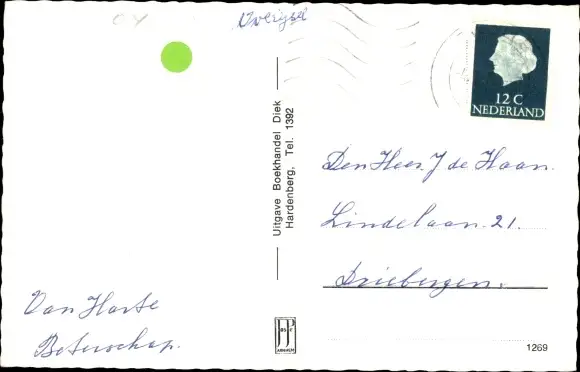 Overijsel
12 C
NEDERLAND
Uitgave Boekhandel Diek
Hardenberg, Tel. 1392
Den Heer J de Haan.
Lindelaan 21.
Driebergen.
Van Harte
Beterschap.
JP
ARNHEM
1269